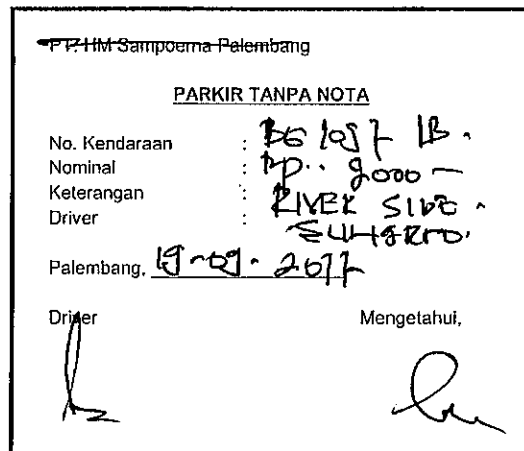 PT. HM Sampoerna Palembang
PARKIR TANPA NOTA
No. Kendaraan : BG 1057 IB.
Nominal : Rp.
Keterangan : RIVER SIDE.
Driver :
Palembang, 19-09-2017
Driver Mengetahui,